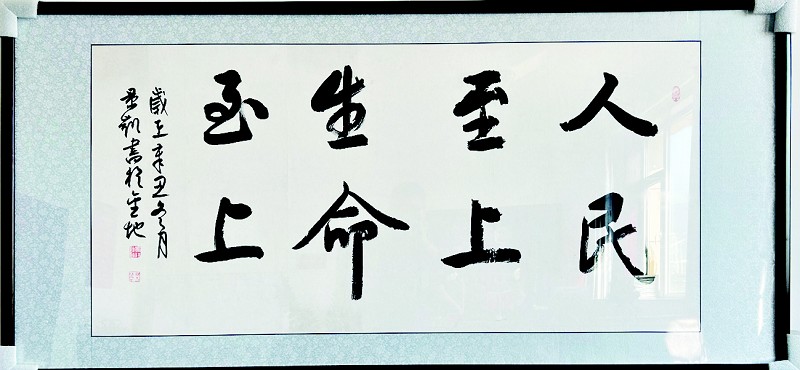 人民
至上
生命
至上
歲在辛丑冬月
景凯書於金地